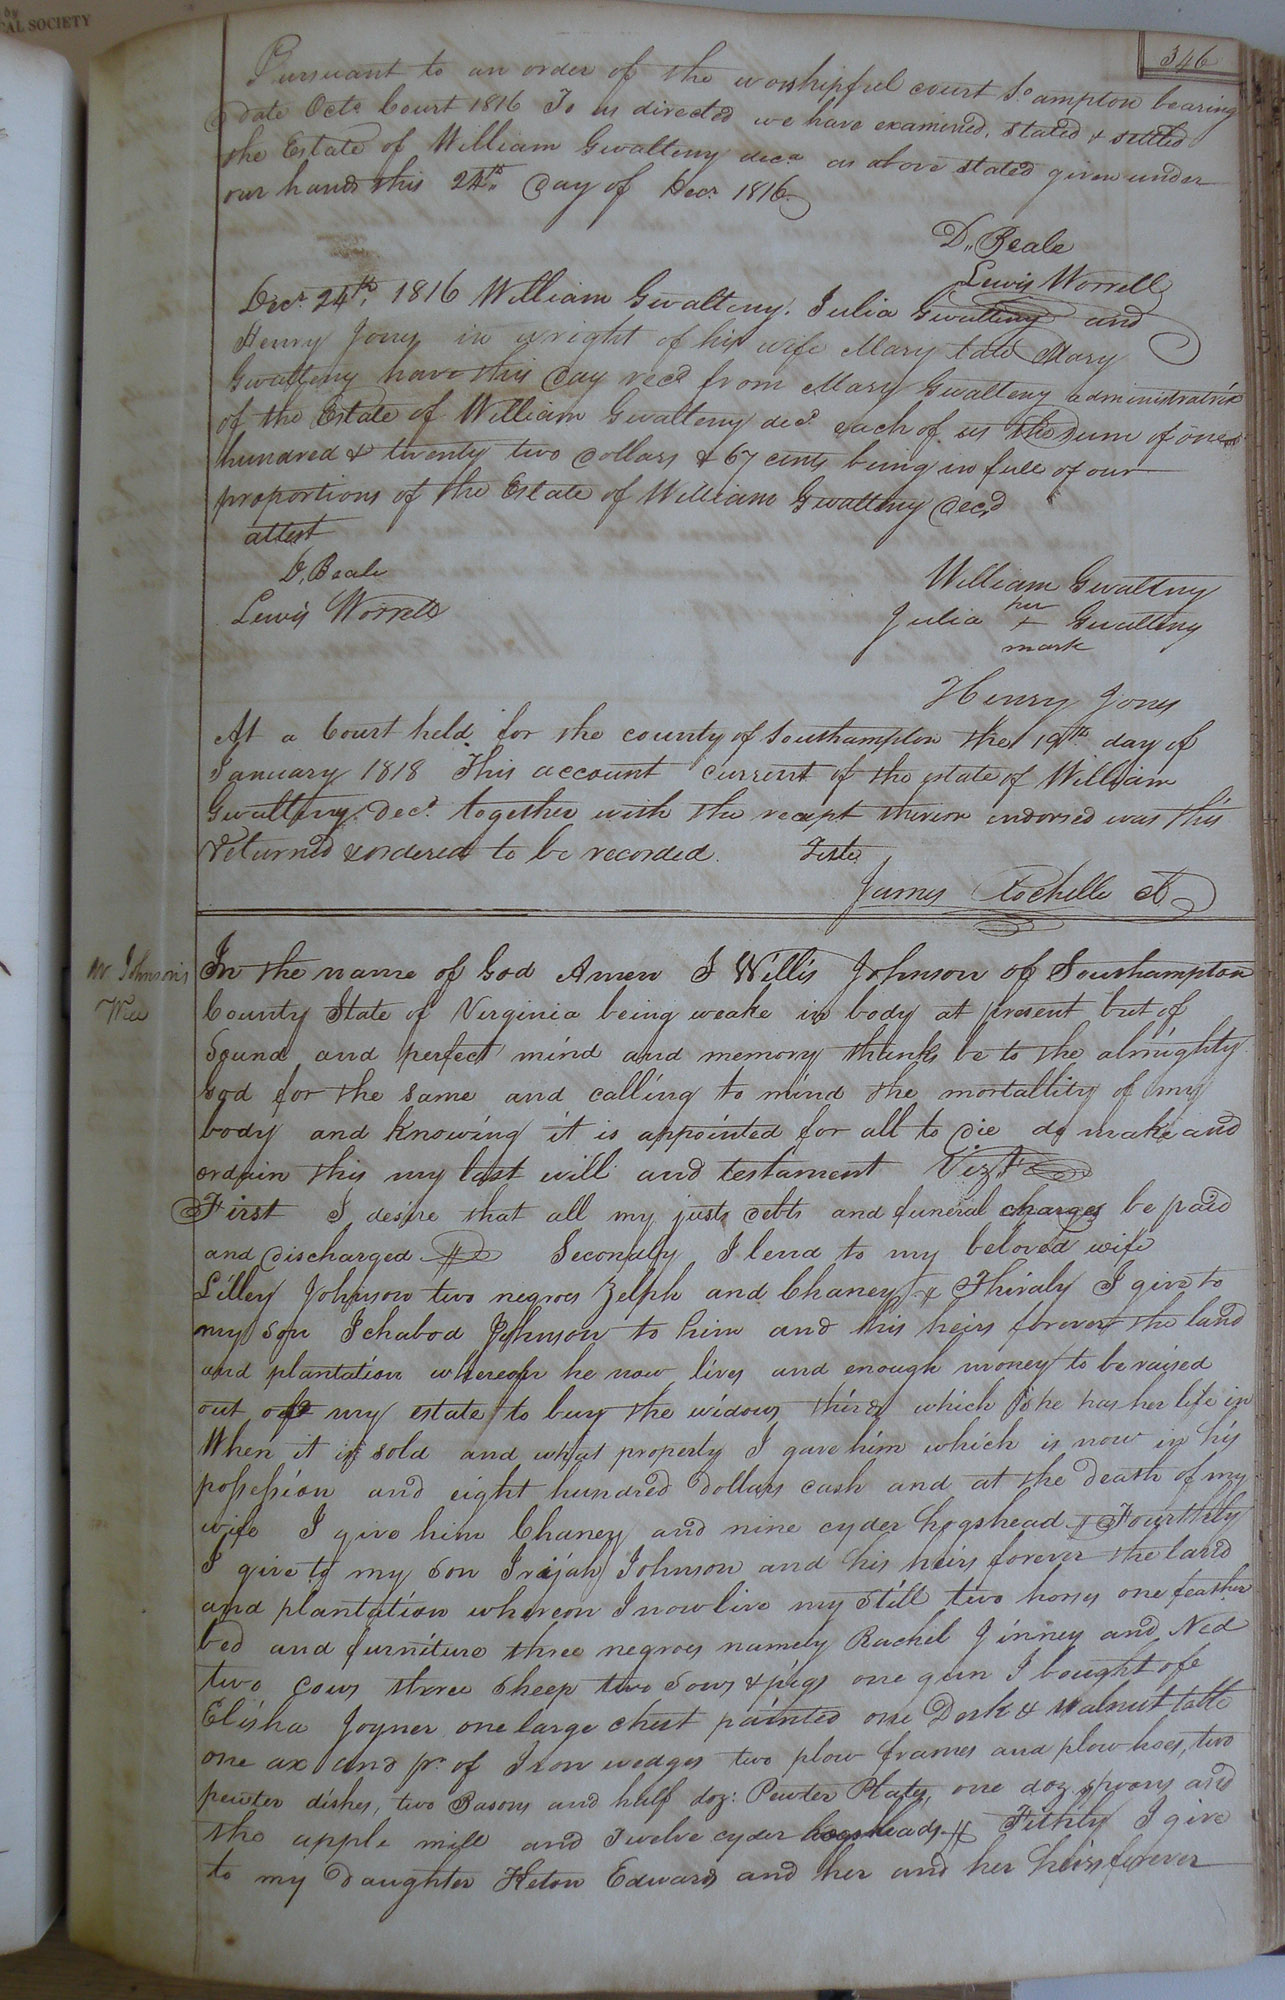 by
CAL SOCIETY
346
Pursuant to an order of the worshipful court So ampton bearing
date Octo Court 1816 To us directed we have examined, stated & settled
the Estate of William Gwaltney decd as above stated given under
our hands this 24th day of Decr 1816
D, Beale
Lewis Worrell
Decr 24th, 1816 William Gwaltney, Julia Gwaltney and
Henry Jones in wright of his wife Mary late Mary
Gwaltney have this day recd from Mary Gwalteny administratrix
of the Estate of William Gwalteny decd each of us the sum of one
hundred & twenty two dollars & 67 cents being in full of our
proportions of the Estate of William Gwaltney decd
attest
D, Beale
Lewis Worrell
William Gwaltny
her
Julia + Gwalteny
mark
Henry Jones
At a Court held for the county of Southampton the 19th day of
January 1818 This account current of the estate of William
Gwalteny Decd together with the receipt thereon endorsed was this
returned & ordered to be recorded. Teste
James Rochelle Ct
W Johnson's
Will
In the name of God Amen I Willis Johnson of Southampton
County State of Virginia being weake in body at present but of
Sound and perfect mind and memory thanks be to the almighty
God for the same and calling to mind the mortallity of my
body and knowing it is appointed for all to die do make and
ordain this my last will and testament Vizt
First I desire that all my justs debts and funeral charges be paid
and discharged Secondly I lend to my beloved wife
Lilley Johnson two negroes Zelph and Chaney & Thiraly I give to
my son Ichabod Johnson to him and his heirs forever the land
and plantation whereon he now lives and enough money to be raised
out of my estate to buy the widows thirds which she has her life in
When it is sold and what property I gave him which is now in his
possession and eight hundred dollars cash and at the death of my
wife I give him Chaney and nine cyder hogshead Fourthly
I give to my son Irijah Johnson and his heirs forever the land
and plantation whereon I now live my still two horses one feather
bed and furniture three negroes namely Rachel Jinney and Ned
two cows three sheep two sows & pigs one gun I bought of
Elisha Joyner one large chest painted one Desk & walnut table
one ax and pr of Iron wedges two plow frames and plow hoes, two
pewter dishes, two Basons and half doz: Pewter Plates, one doz. spoons and
the apple mill and Twelve cyder hogsheads Fithly I give
to my Daughter Edwards and her and her heirs forever